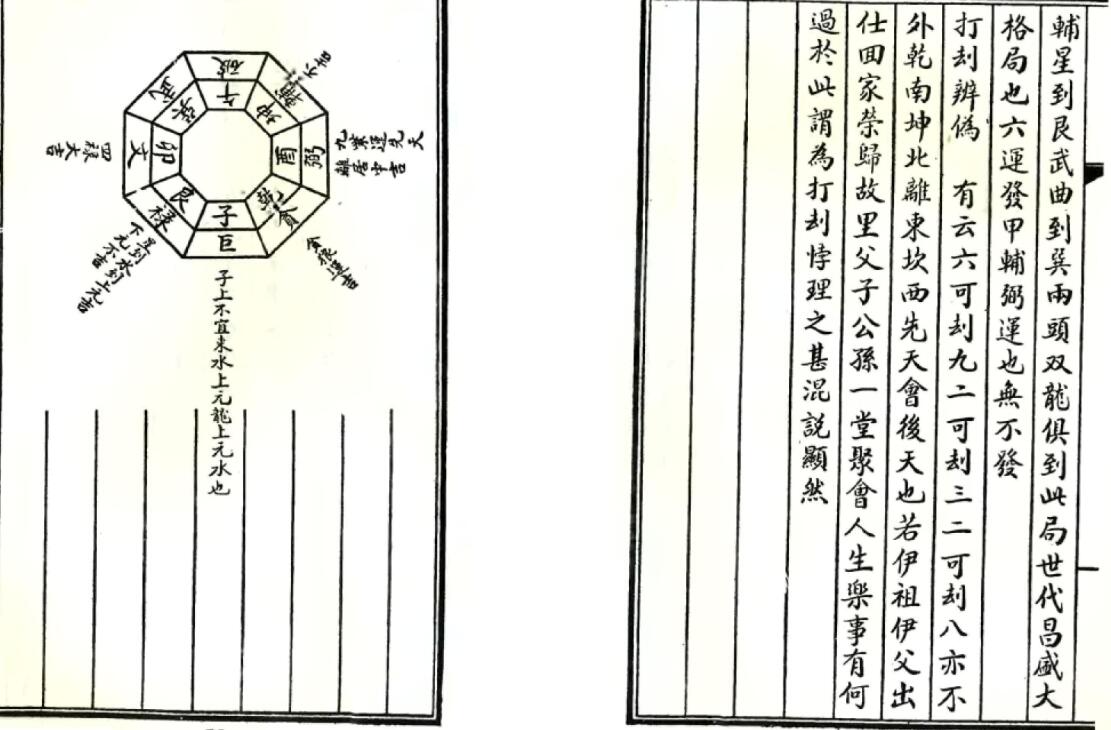 輔星到艮武曲到巽兩頭双龍俱到此局世代昌盛大
格局也六運發甲輔弼運也無不發
打刦辨偽　有云六可刦九二可刦三二可刦八亦不
外乾南坤北離東坎西先天會後天也若伊祖伊父出
仕回家榮歸故里父子公孫一堂聚會人生樂事有何
過於此謂為打刦悖理之甚混説顯然
破
午
輔
坤
不吉
弼
酉
貪
乾
巨
子
禄
艮
文
卯
武
巽
四禄大吉
子上不宜来水上元龍上元水也